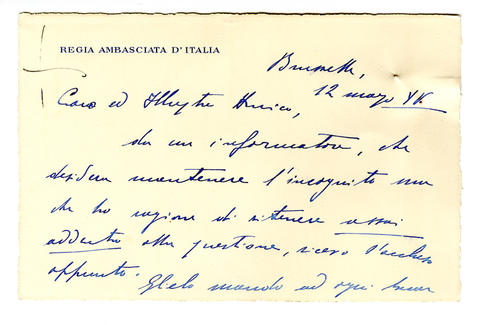 REGIA AMBASCIATA D'ITALIA
Bruxelles,
12 marzo XV.
Caro ed Illustre Amico,
da un informatore, che
desidera mantenere l'incognito ma
che ho ragione di ritenere assai
addentro alla questione, ricevo l'accluso
appunto. Glielo mando ad ogni buon